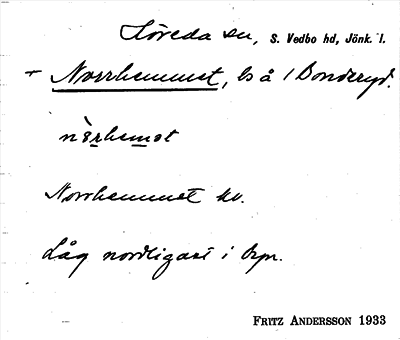 Löreda sn, S. Vedbo hd, Jönk. l.
+ Norrhemmet, bs å 1 Bonderyd.
nòrhemət
Norrhemmet kv.
Låg nordligast i byn.
FRITZ ANDERSSON 1933